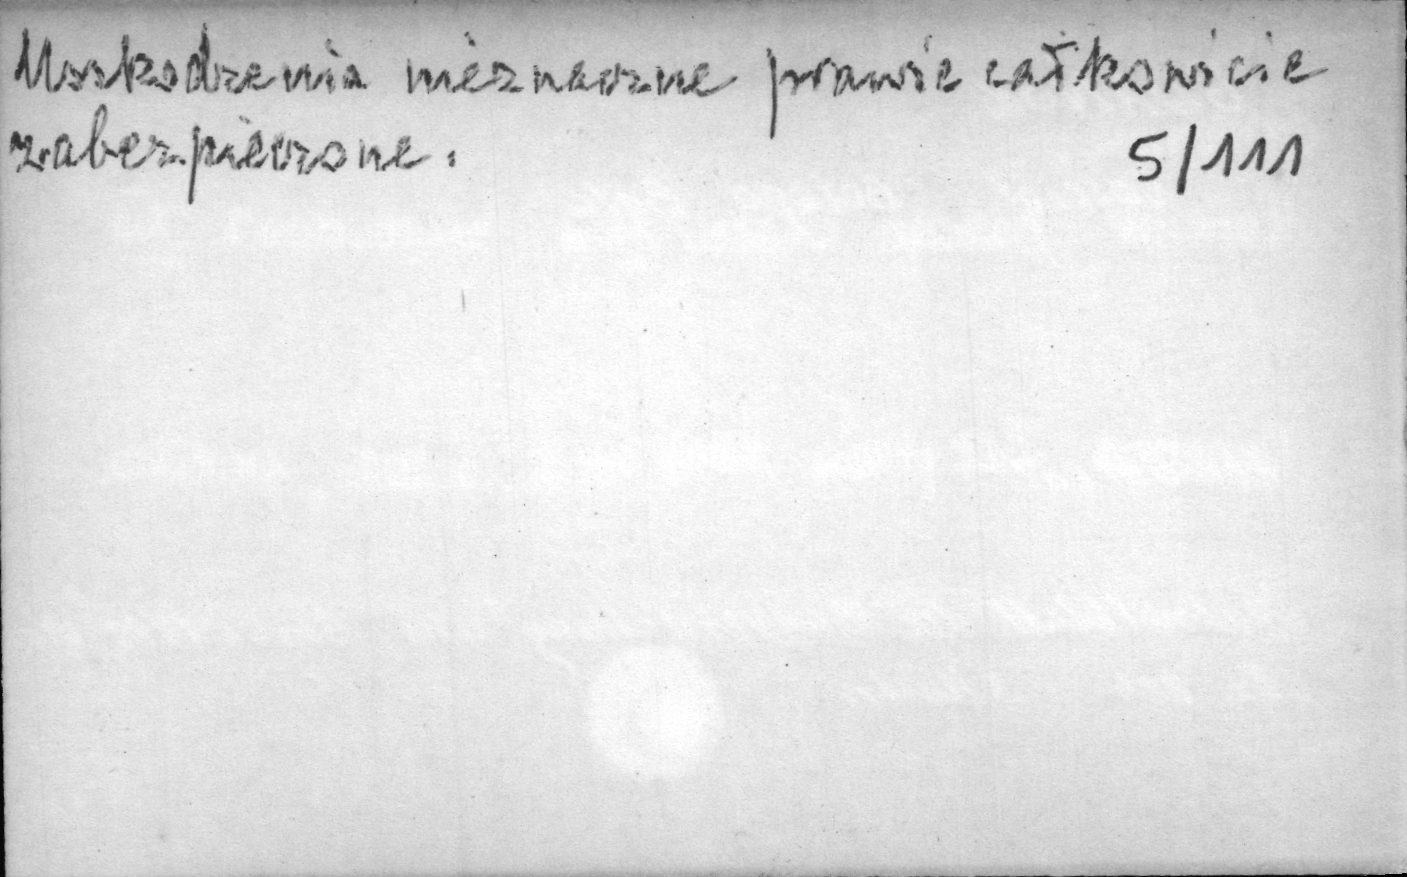 Uszkodzenia nieznaczne prawie całkowicie
zabezpieczone.
5/111